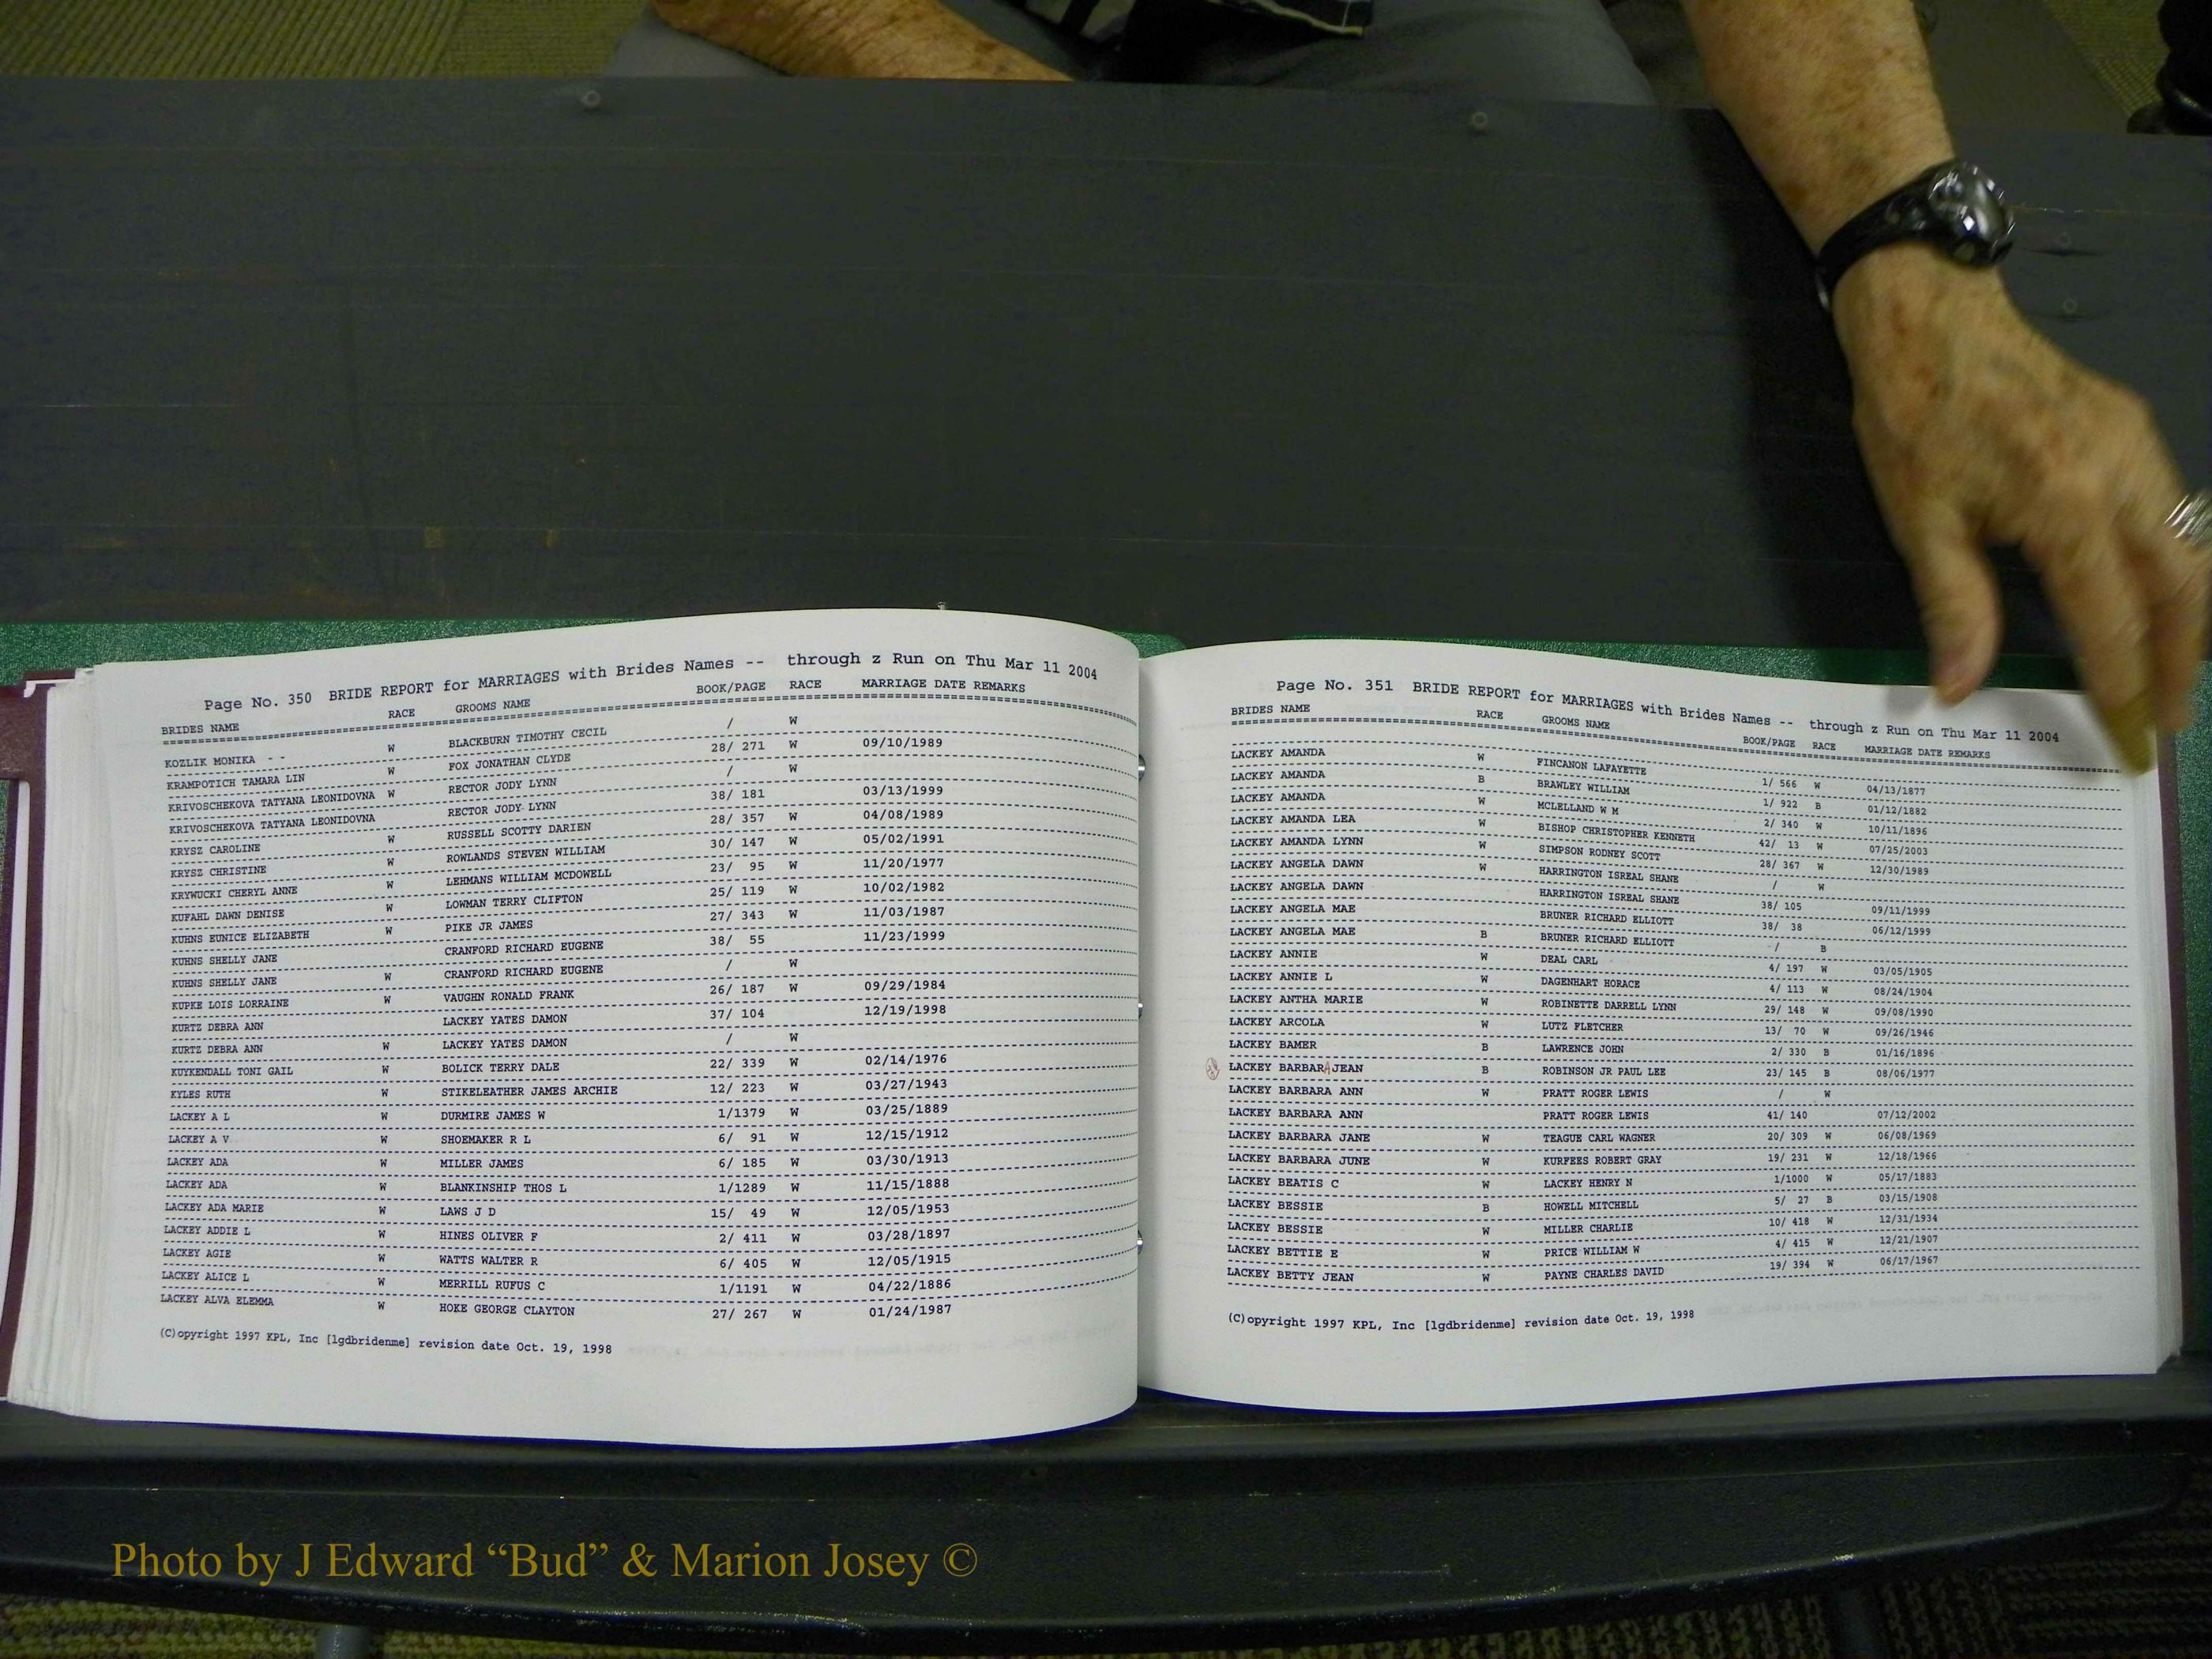 Page No. 350 BRIDE REPORT for MARRIAGES with Brides Names -- through z Run on Thu Mar 11 2004
BRIDES NAME RACE GROOMS NAME BOOK/PAGE RACE MARRIAGE DATE REMARKS
KOZLIK MONIKA - - W BLACKBURN TIMOTHY CECIL / W
KRAMPOTICH TAMARA LIN W FOX JONATHAN CLYDE 28/ 271 W 09/10/1989
KRIVOSCHEKOVA TATYANA LEONIDOVNA W RECTOR JODY LYNN / W
KRIVOSCHEKOVA TATYANA LEONIDOVNA RECTOR JODY LYNN 38/ 181 03/13/1999
KRYSZ CAROLINE W RUSSELL SCOTTY DARIEN 28/ 357 W 04/08/1989
KRYSZ CHRISTINE W ROWLANDS STEVEN WILLIAM 30/ 147 W 05/02/1991
KRYWUCKI CHERYL ANNE W LEHMANS WILLIAM MCDOWELL 23/ 95 W 11/20/1977
KUFAHL DAWN DENISE W LOWMAN TERRY CLIFTON 25/ 119 W 10/02/1982
KUHNS EUNICE ELIZABETH W PIKE JR JAMES 27/ 343 W 11/03/1987
KUHNS SHELLY JANE CRANFORD RICHARD EUGENE 38/ 55 11/23/1999
KUHNS SHELLY JANE W CRANFORD RICHARD EUGENE / W
KUPKE LOIS LORRAINE W VAUGHN RONALD FRANK 26/ 187 W 09/29/1984
KURTZ DEBRA ANN LACKEY YATES DAMON 37/ 104 12/19/1998
KURTZ DEBRA ANN W LACKEY YATES DAMON / W
KUYKENDALL TONI GAIL W BOLICK TERRY DALE 22/ 339 W 02/14/1976
KYLES RUTH W STIKELEATHER JAMES ARCHIE 12/ 223 W 03/27/1943
LACKEY A L W DURMIRE JAMES W 1/1379 W 03/25/1889
LACKEY A V W SHOEMAKER R L 6/ 91 W 12/15/1912
LACKEY ADA W MILLER JAMES 6/ 185 W 03/30/1913
LACKEY ADA W BLANKINSHIP THOS L 1/1289 W 11/15/1888
LACKEY ADA MARIE W LAWS J D 15/ 49 W 12/05/1953
LACKEY ADDIE L W HINES OLIVER F 2/ 411 W 03/28/1897
LACKEY AGIE W WATTS WALTER R 6/ 405 W 12/05/1915
LACKEY ALICE L W MERRILL RUFUS C 1/1191 W 04/22/1886
LACKEY ALVA ELEMMA W HOKE GEORGE CLAYTON 27/ 267 W 01/24/1987
(C)opyright 1997 KPL, Inc [lgdbridenme] revision date Oct. 19, 1998
Page No. 351 BRIDE REPORT for MARRIAGES with Brides Names -- through z Run on Thu Mar 11 2004
BRIDES NAME RACE GROOMS NAME BOOK/PAGE RACE MARRIAGE DATE REMARKS
LACKEY AMANDA W FINCANON LAFAYETTE 1/ 566 W 04/13/1877
LACKEY AMANDA B BRAWLEY WILLIAM 1/ 922 B 01/12/1882
LACKEY AMANDA W MCLELLAND W M 2/ 340 W 10/11/1896
LACKEY AMANDA LEA W BISHOP CHRISTOPHER KENNETH 42/ 13 W 07/25/2003
LACKEY AMANDA LYNN W SIMPSON RODNEY SCOTT 28/ 367 W 12/30/1989
LACKEY ANGELA DAWN W HARRINGTON ISREAL SHANE / W
LACKEY ANGELA DAWN HARRINGTON ISREAL SHANE 38/ 105 09/11/1999
LACKEY ANGELA MAE BRUNER RICHARD ELLIOTT 38/ 38 06/12/1999
LACKEY ANGELA MAE B BRUNER RICHARD ELLIOTT / B
LACKEY ANNIE W DEAL CARL 4/ 197 W 03/05/1905
LACKEY ANNIE L W DAGENHART HORACE 4/ 113 W 08/24/1904
LACKEY ANTHA MARIE W ROBINETTE DARRELL LYNN 29/ 148 W 09/08/1990
LACKEY ARCOLA W LUTZ FLETCHER 13/ 70 W 09/26/1946
LACKEY BAMER B LAWRENCE JOHN 2/ 330 B 01/16/1896
LACKEY BARBARA JEAN B ROBINSON JR PAUL LEE 23/ 145 B 08/06/1977
LACKEY BARBARA ANN W PRATT ROGER LEWIS / W
LACKEY BARBARA ANN PRATT ROGER LEWIS 41/ 140 07/12/2002
LACKEY BARBARA JANE W TEAGUE CARL WAGNER 20/ 309 W 06/08/1969
LACKEY BARBARA JUNE W KURFEES ROBERT GRAY 19/ 231 W 12/18/1966
LACKEY BEATIS C W LACKEY HENRY N 1/1000 W 05/17/1883
LACKEY BESSIE B HOWELL MITCHELL 5/ 27 B 03/15/1908
LACKEY BESSIE W MILLER CHARLIE 10/ 418 W 12/31/1934
LACKEY BETTIE E W PRICE WILLIAM W 4/ 415 W 12/21/1907
LACKEY BETTY JEAN W PAYNE CHARLES DAVID 19/ 394 W 06/17/1967
(C)opyright 1997 KPL, Inc [lgdbridenme] revision date Oct. 19, 1998
Photo by J Edward “Bud” & Marion Josey ©